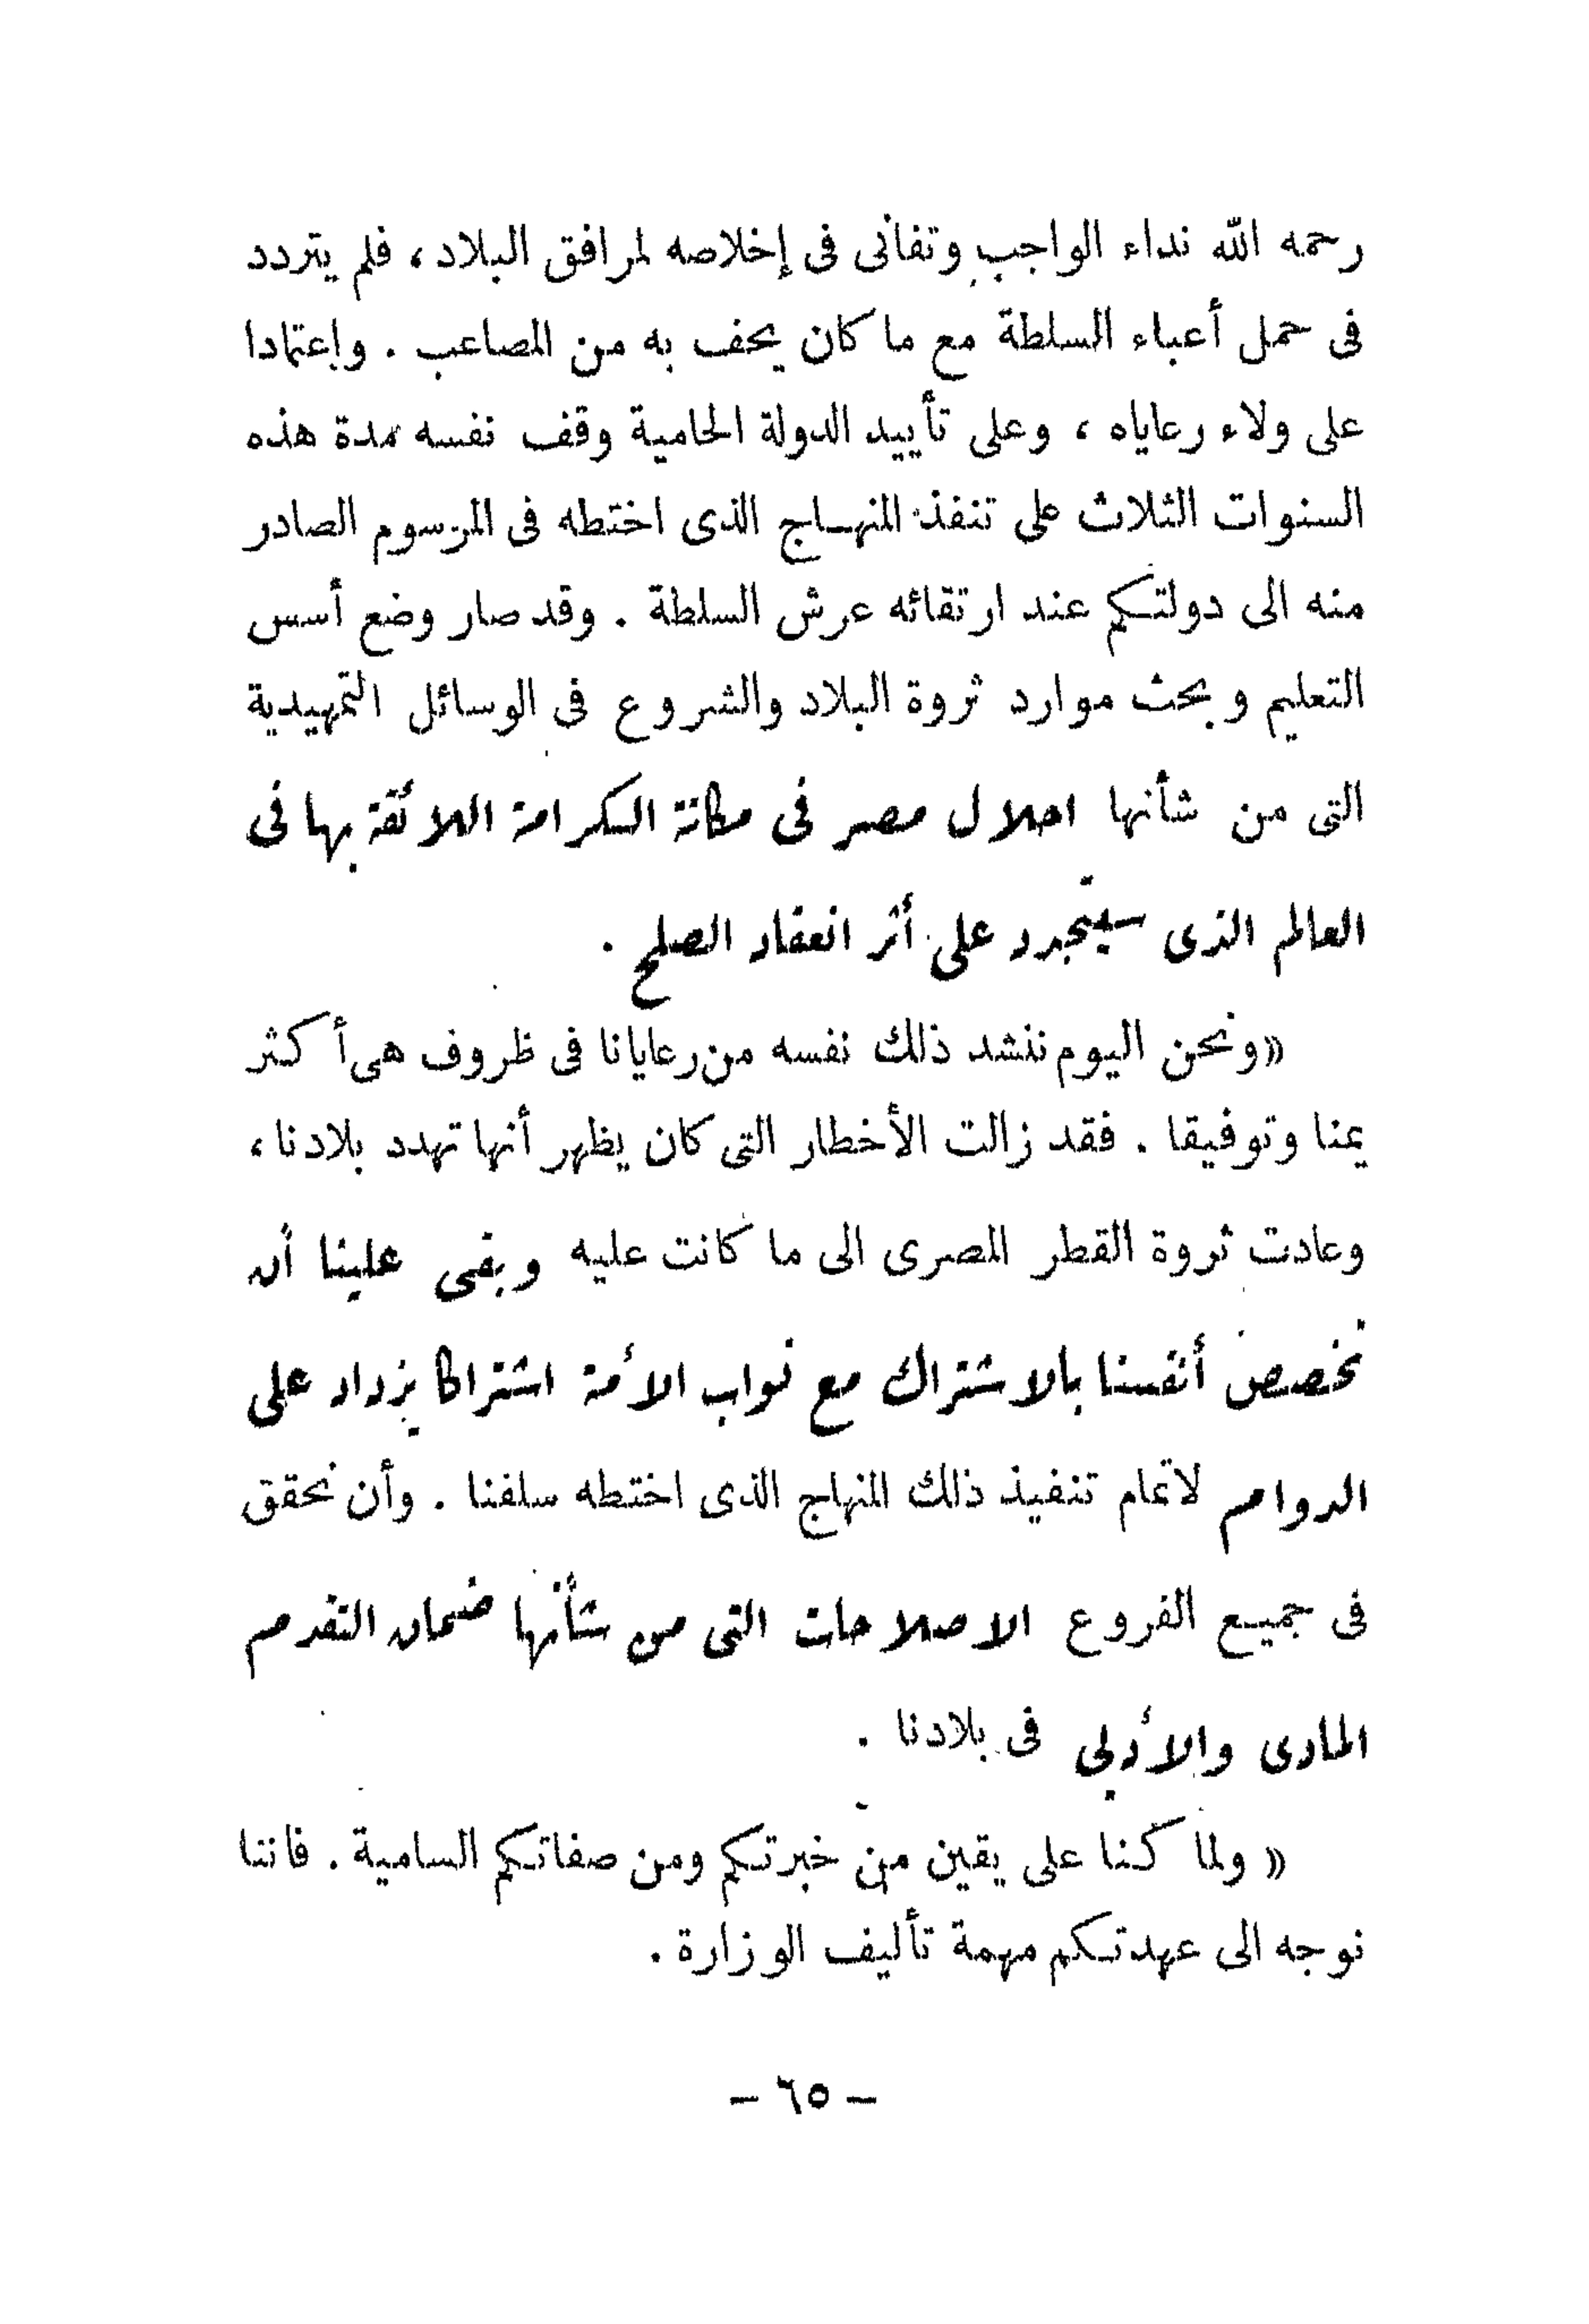 رحمه الله نداء الواجب وتفانى فى إخلاصه لمرافق البلاد، فلم يتردد
فى حمل أعباء السلطة مع ما كان يحف به من المصاعب . وإعتمادا
على ولاء رعاياه ، وعلى تأييد الدولة الحامية وقف نفسه مدة هذه
السنوات الثلاث على تنفذ المنهاج الذى اختطه فى المرسوم الصادر
منه الى دولتكم عند ارتقائه عرش السلطة . وقد صار وضع أسس
التعليم وبحث موارد ثروة البلاد والشروع فى الوسائل التمهيدية
التى من شأنها احلال مصر فى مكانة الكرامة اللائقة بها فى
العالم الذى سيتجدد على أثر انعقاد الصلح .
«ونحن اليوم ننشد ذلك نفسه من رعايانا فى ظروف هى أكثر
يمنا وتوفيقا . فقد زالت الأخطار التى كان يظهر أنها تهدد بلادنا،
وعادت ثروة القطر المصرى الى ما كانت عليه وبقى علينا أن
نخصص أنفسنا بالاشتراك مع نواب الأمة اشتراكا يزداد على
الدوام لاتمام تنفيذ ذلك المنهاج الذى اختطه سلفنا . وأن نحقق
فى جميع الفروع الاصلاحات التى من شأنها ضمان التقدم
المادى والأدبى فى بلادنا .
« ولما كنا على يقين من خبرتكم ومن صفاتكم السامية . فاننا
نوجه الى عهدتكم مهمة تأليف الوزارة .
— ٦٥ —